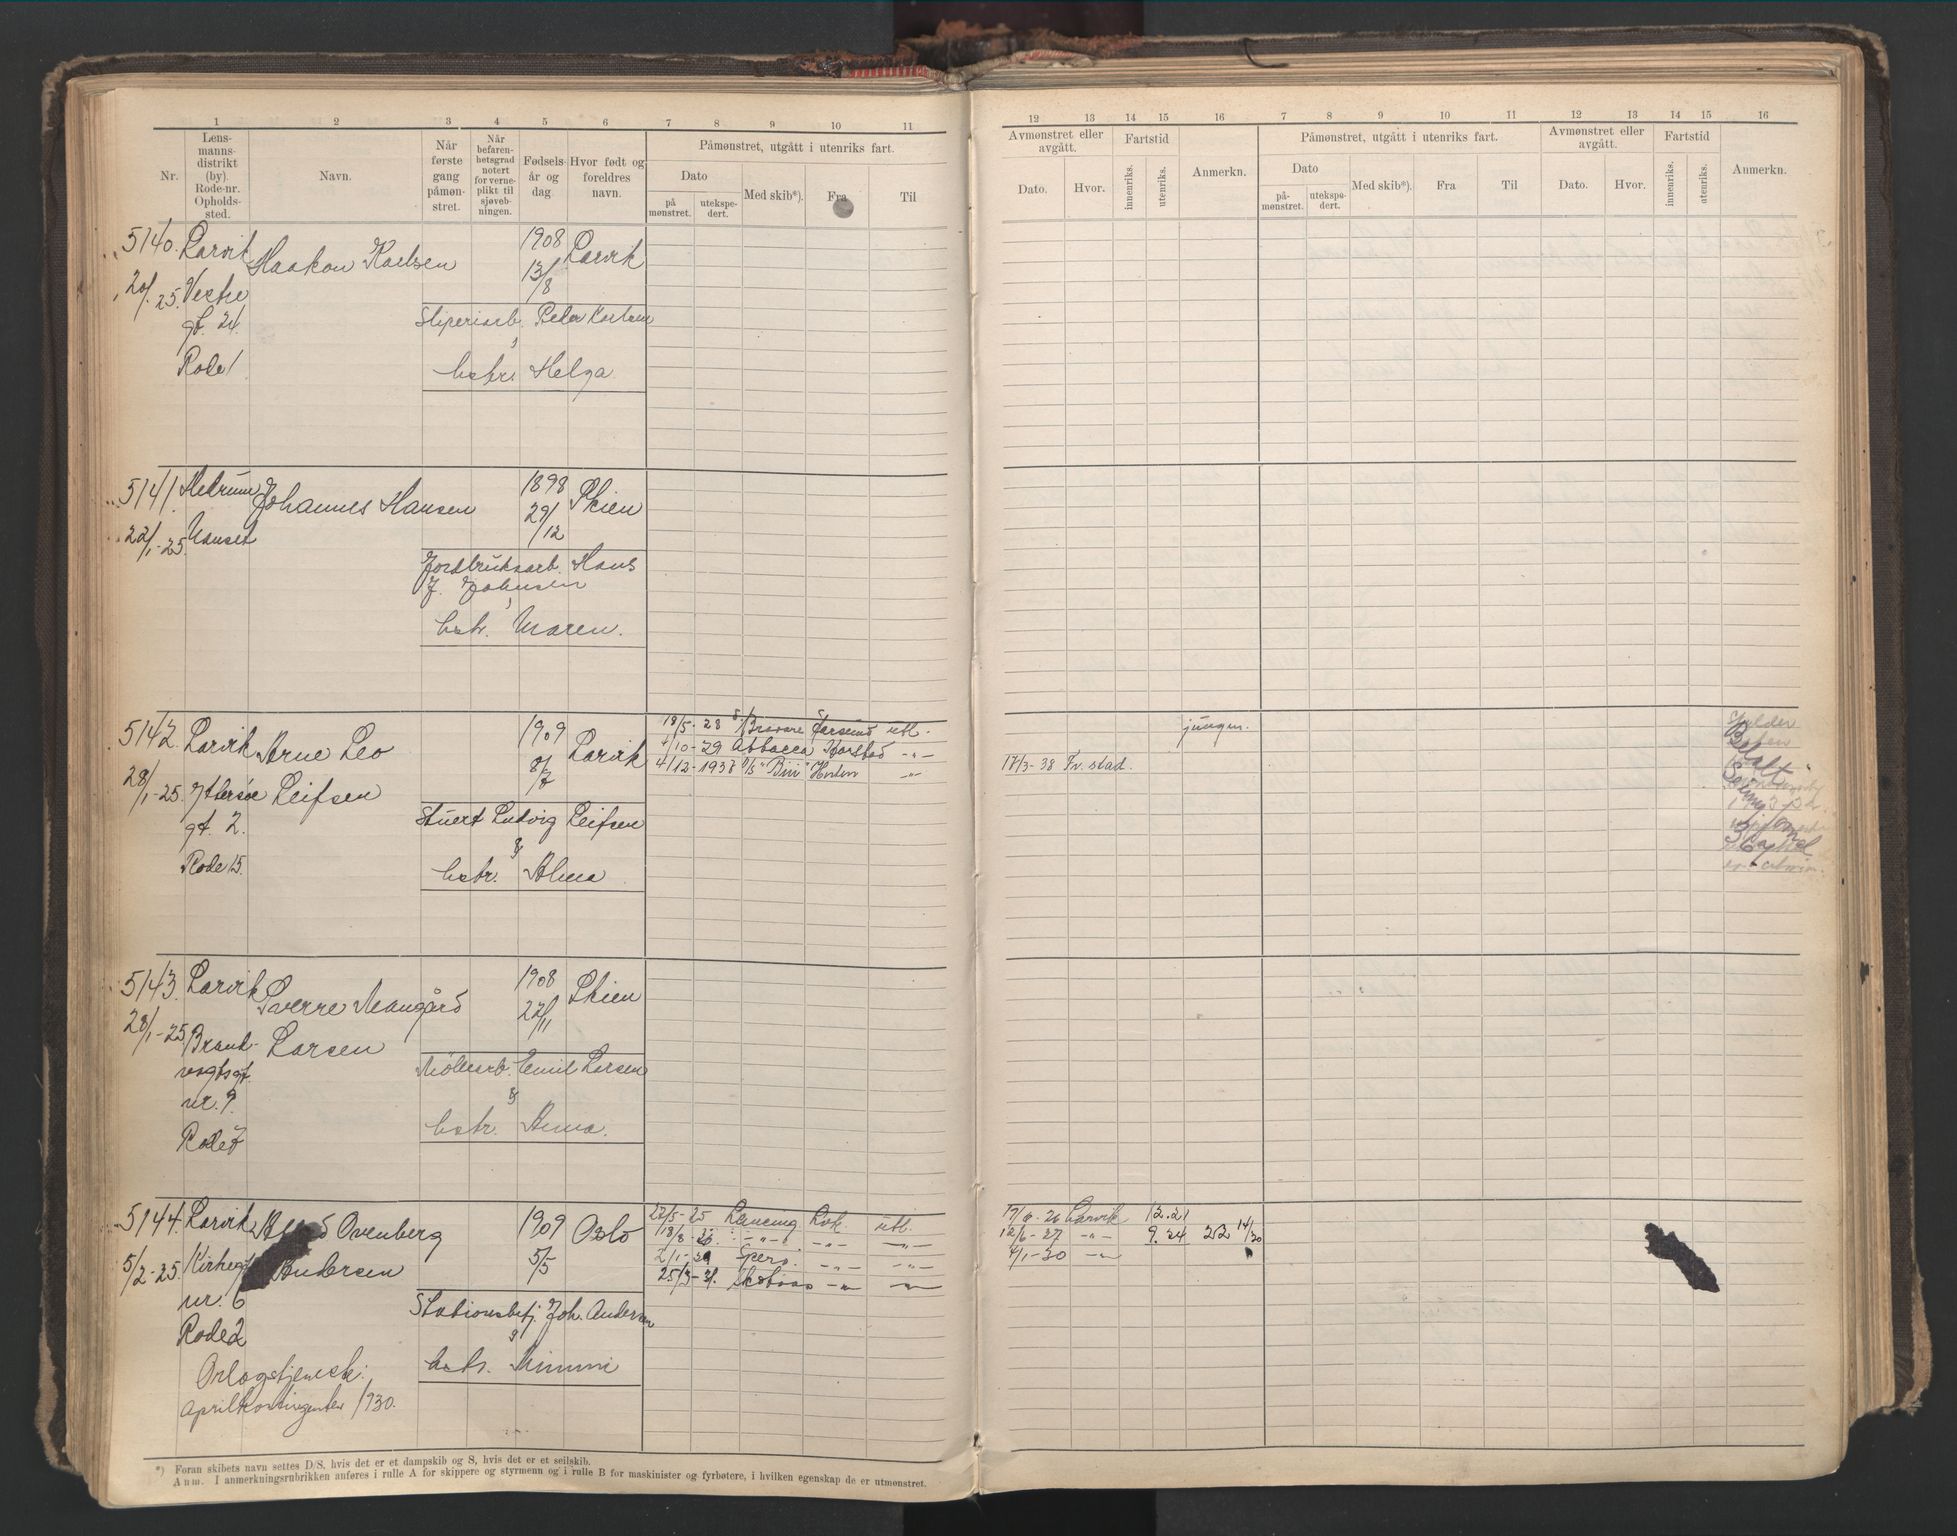 1 2 3 4 5 6 7 8 9 10 11
Nr.
Lens-
manns-
distrikt
(by).
Rode-nr.
Opholds-
sted.
Navn.
Når
første
gang
påmøn-
stret.
Når
befaren-
hetsgrad
notert
for verne-
plikt til
sjøveb-
ningen.
Fødsels-
år og
dag.
Hvor født og
foreldres
navn.
Påmønstret, utgått i utenriks fart.
Dato
på
mønstret.
utekspe-
dert.
Med skib*).
Fra
Til
5140. Larvik Haakon Karlsen 1908 Larvik
20/1 25. Vestre 13/8
gt. 24.
Rode 1
Sliperiarb. Peter Karlsen
&
hstr. Helga
5141. Hedrum Johannes Hansen 1898 Skien
22/1-25. Nanset 29/12
Jordbruksarb. Hans
J. Johnsen
&
hstr. Maren.
5142. Larvik Arne Leo 1909 Larvik 18/5-28 Farsund utl.
28/1-25. Leifsen 8/7 4/10-29 Abbacca -"-
gt. 2. 4/12-1937 "Biri" Horten -"-
Rode 15.
Stuert Ludvig Leifsen
&
hstr. Alma
5143. Larvik Sverre Maangård 1908 Skien
28/1-25 Brand- Larsen 22/11
vagtsgt.
nr. 9.
Rode 7
Møllearb. Emil Larsen
&
hstr. Anna.
5144. Larvik Ovenberg 1909 Oslo 22/5-25 Lancing Lvk. utl.
5/2-25. Kirkegt. Andersen 5/5 18/8-26 -"- -"- -"-
nr. 6 Spero. -"- -"-
Rode 2 25/3-31. -"- -"-
Stationsbetj. Joh. Andersen
&
hstr. Mimmi
Orlogstjeneste:
Aprilkontingenten 1930.
*) Foran skibets navn settes D/S, hvis det er et dampskib og S, hvis det er et seilskib.
Anm. I anmerkningsrubrikken anføres i rulle A for skippere og styrmenn og i rulle B for maskinister og fyrbøtere, i hvilken egenskap de er utmønstret.
12 13 14 15 16 7 8 9 10 11 12 13 14 15 16
Avmønstret eller
avgått.
Dato.
Hvor.
Fartstid
innenriks.
utenriks.
Anmerkn.
Påmønstret, utgått i utenriks fart.
Dato
på-
mønstret.
utekspe-
dert.
Med skib*).
Fra
Til
Avmønstret eller
avgått.
Dato.
Hvor.
Fartstid
innenriks.
utenriks.
Anmerkn.
jungm.
17/3-38 Fr.stad.
17/6-26 Larvik 12.21
12/6-27 -"- 9.24 22 14/30
4/1-30 -"-